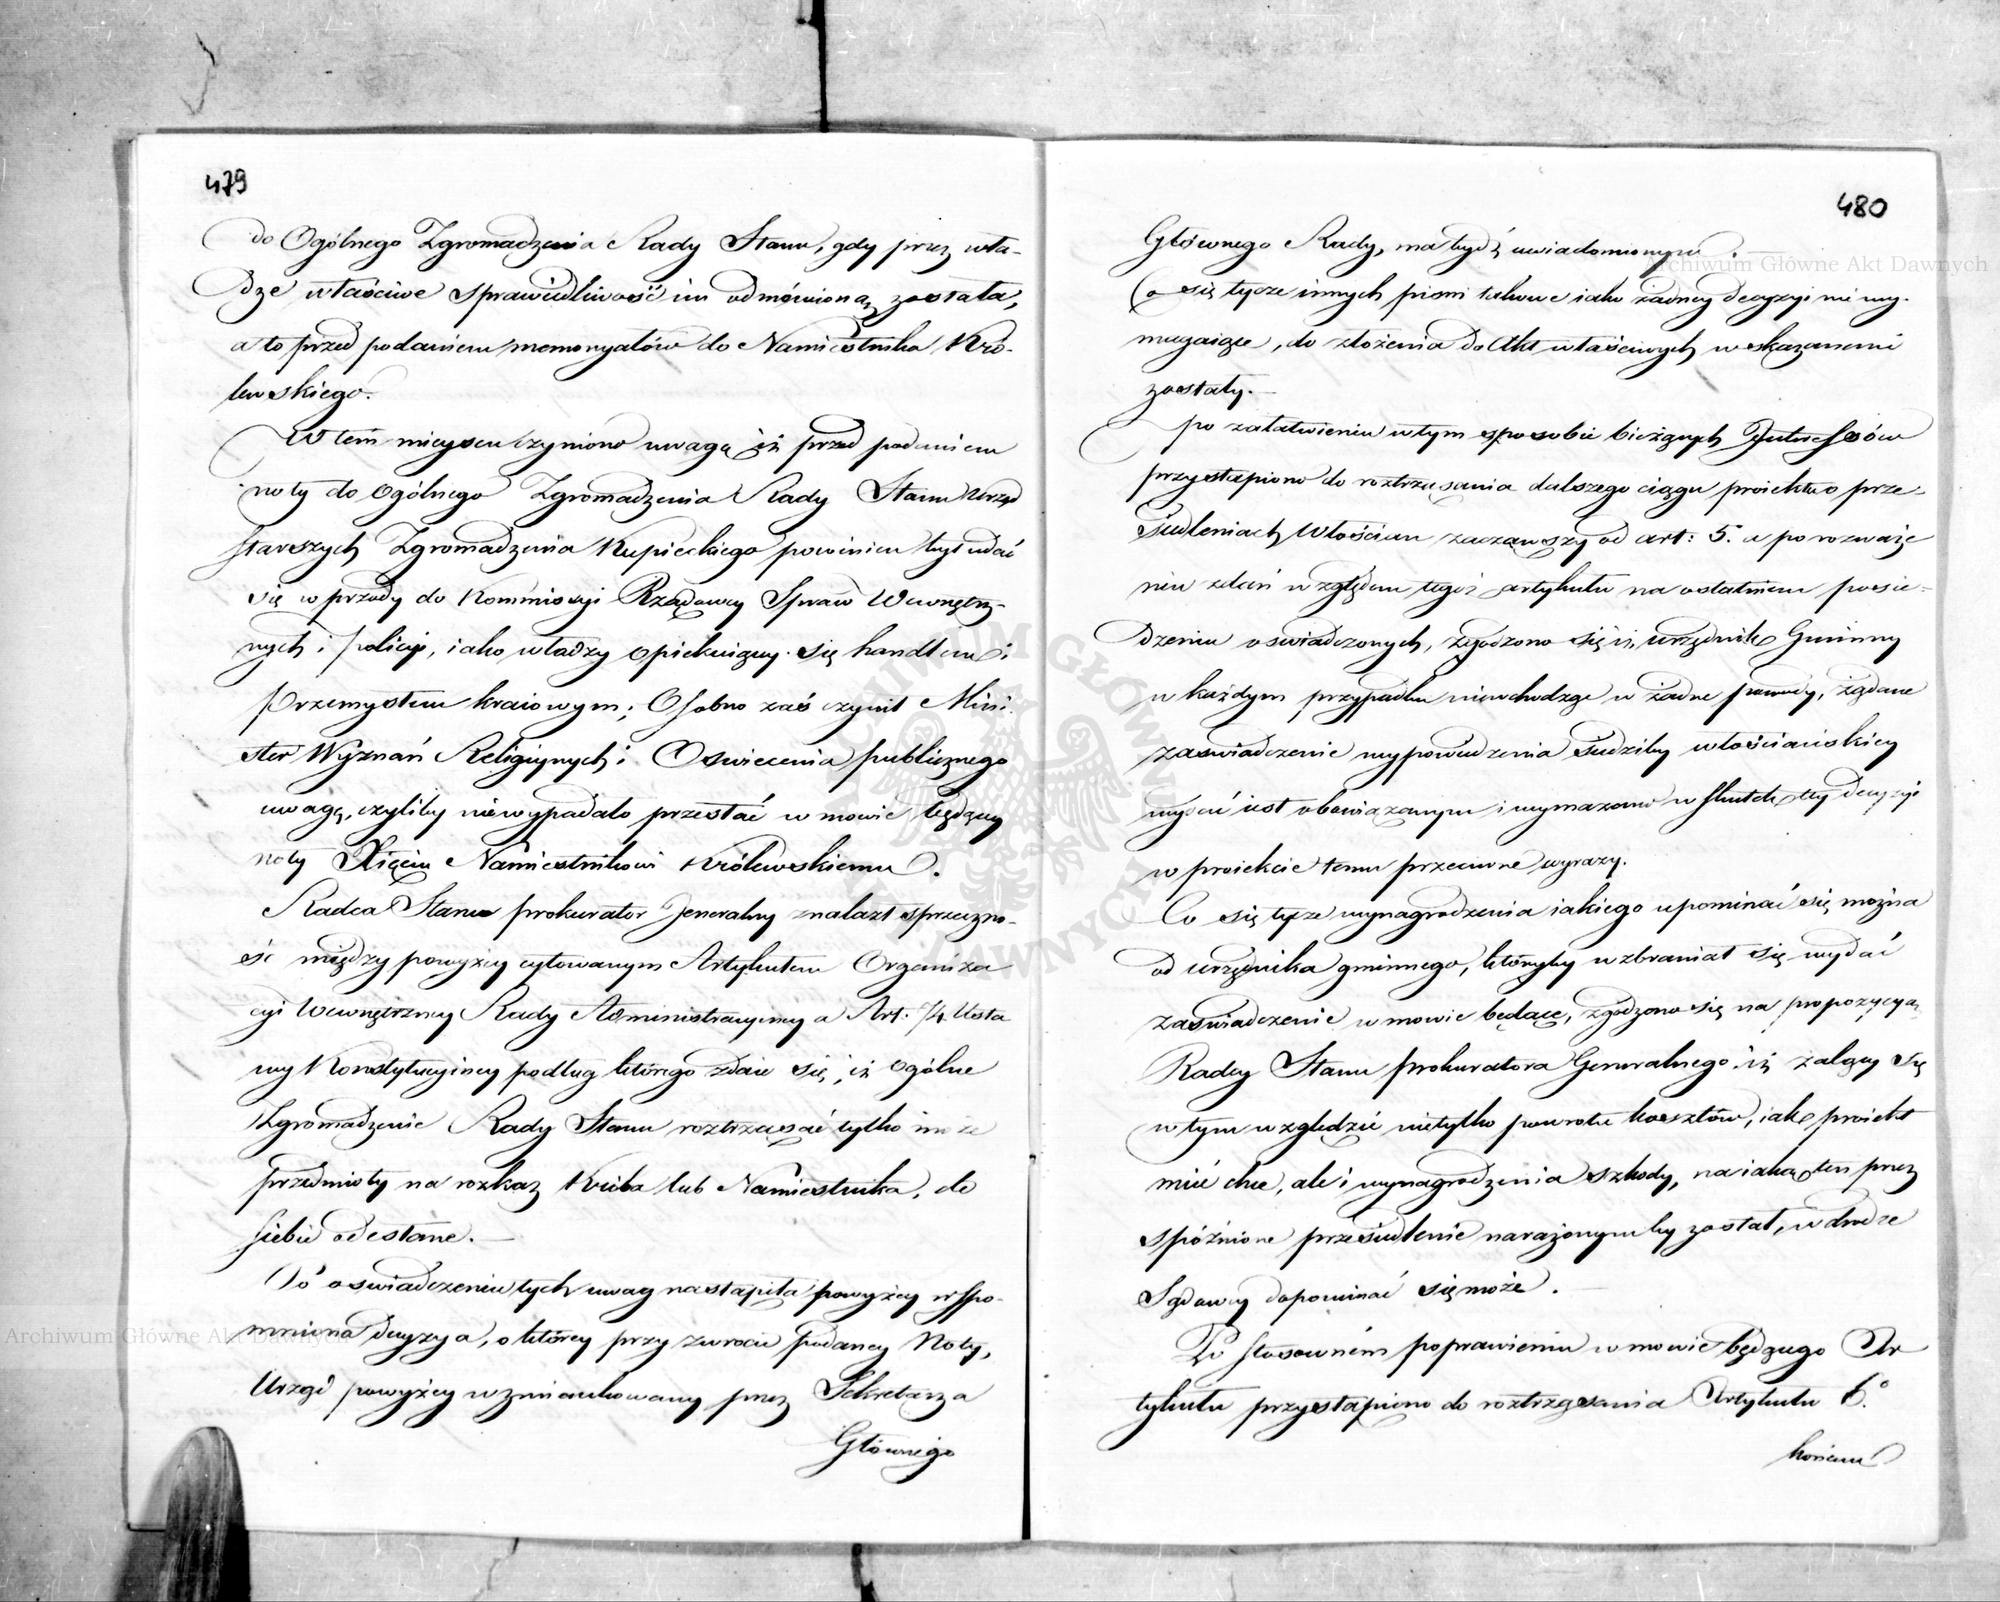 479
do Ogólnego Zgromadzenia Rady Stanu, gdy przez wła-
dze właściwe sprawiedliwość im odmówioną została,
a to przed podaniem memoryałów do Namiestnika Kró-
lewskiego.
W tém mieyscu czyniono uwagę iż przed podaniem
noty do Ogólnego Zgromadzenia Rady Stanu Urząd
starszych Zgromadzenia Kupieckiego powinien był udać
się w przody do Kommissyi Rządowey Spraw Wewnętrz-
nych i Policyi, iako władzy opiekuiącey się handlem i
Przemysłem kraiowym; Osobno zaś czynił Mini-
ster Wyznań Religiynych i Oświecenia publicznego
uwagę, czyliby niewypadało przesłać w mowie będącey
noty Xięciu Namiestnikowi Królewskiemu.
Radca Stanu prokurator Jeneralny znalazł sprzeczno-
ść między powyżey cytowanym Artykułem Organiza
cyi Wewnętrzney Rady Administracyiney a Art: 74 Usta
wy Konstytucyiney podług którego zdaie się, iż ogólne
Zgromadzenie Rady Stanu roztrząsać tylko może
przedmioty na rozkaz Króla lub Namiestnika, do
siebie odesłane.
Po oświadczeniu tych uwag nastąpiła powyżey wspo-
mniona decyzya, o którey przy zwrocie podaney Noty,
Urząd powyżey wzmiankowany przez Sekretarza
Głównego
480
Głównego Rady, ma bydź uwiadomionym.
Co się tycze innych pism takowe iako żadney decyzyi nie wy-
magaiące, do złożenia do Akt właściwych wskazanemi
zostały.
po załatwieniu w tym sposobie bieżących Interessów
przystąpiono do roztrząsania dalszego ciągu proiektu o prze-
siedleniach Włościan zacząwszy od art: 5. a po rozważe
niu zdań względem tegoż artykułu na ostatniem posie-
dzeniu oświadczonych, zgodzono się iż urzędnik Gminny
w każdym przypadku niewchodząc w żadne powody, żądane
zaświadczenie wypowiedzenia siedziby włościańskiey
wydać iest obowiązanym i wymazano w skutek tey decyzyi
w proiekcie temu przeciwne wyrazy.
Co się tycze wynagrodzenia iakiego upominać się można
od urzędnika gminnego, któryby wzbraniał się wydać
zaświadczenie w mowie będące, zgodzono się na propozycyą
Radcy Stanu prokuratora Generalnego iż żalący się
w tym względzie nietylko powrotu kosztów, iak proiekt
mieć chce, ale i wynagrodzenia szkody, na iaką ten przez
spóźnione przesiedlenie narażonym by został, w drodze
Sądowey dopominać się może.
Po stosowném poprawieniu w mowie będącego Ar
tykułu przystąpiono do roztrząsania Artykułu 6.º